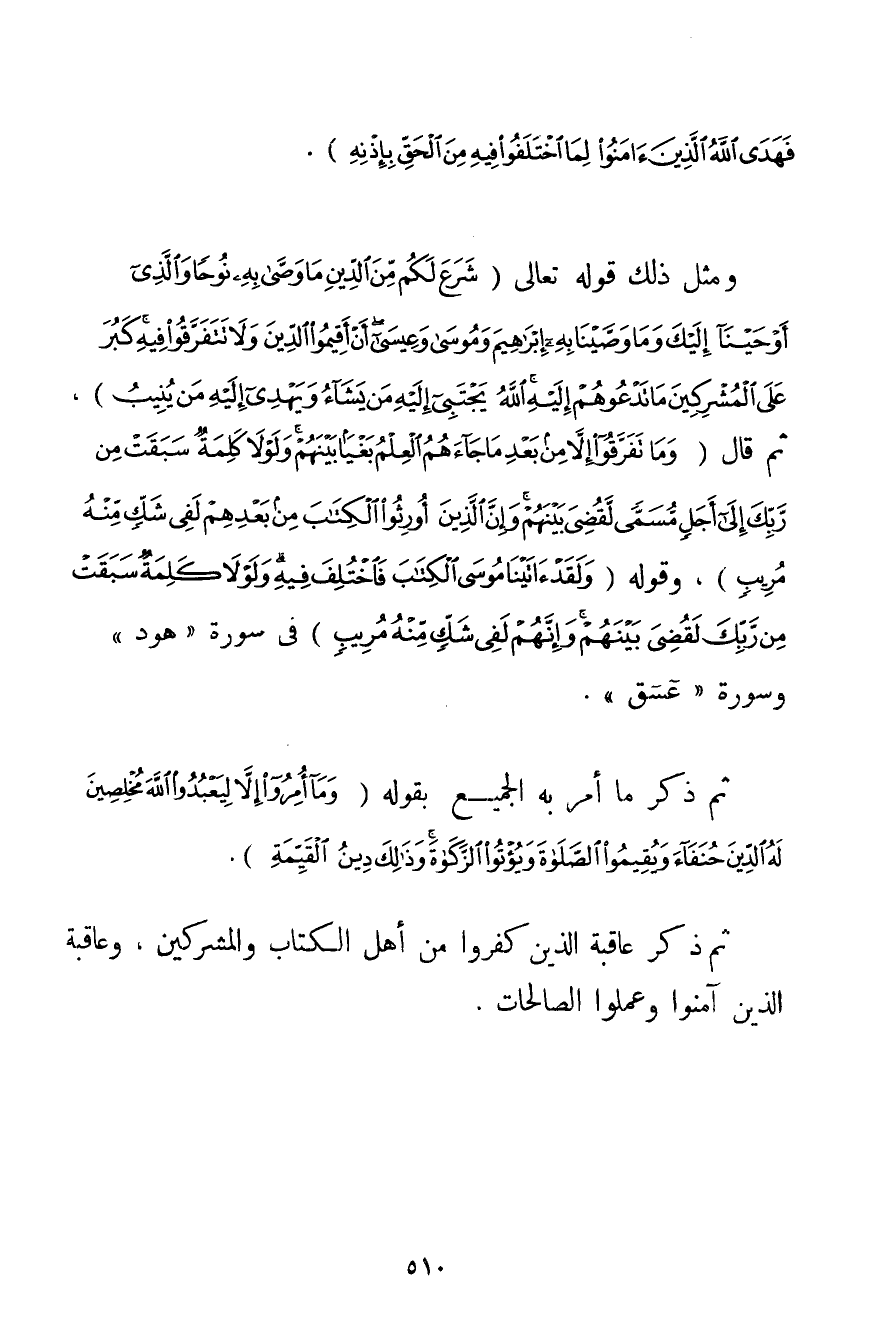 فَهَدَى ٱللَّهُ ٱلَّذِينَ ءَامَنُوا۟ لِمَا ٱخْتَلَفُوا۟ فِيهِ مِنَ ٱلْحَقِّ بِإِذْنِهِ ) .
ومثل ذلك قوله تعالى ( شَرَعَ لَكُم مِّنَ ٱلدِّينِ مَا وَصَّىٰ بِهِۦ نُوحًا وَٱلَّذِىٓ
أَوْحَيْنَآ إِلَيْكَ وَمَا وَصَّيْنَا بِهِۦٓ إِبْرَٰهِيمَ وَمُوسَىٰ وَعِيسَىٰٓ ۖ أَنْ أَقِيمُوا۟ ٱلدِّينَ وَلَا تَتَفَرَّقُوا۟ فِيهِ ۚ كَبُرَ
عَلَى ٱلْمُشْرِكِينَ مَا تَدْعُوهُمْ إِلَيْهِ ۚ ٱللَّهُ يَجْتَبِىٓ إِلَيْهِ مَن يَشَآءُ وَيَهْدِىٓ إِلَيْهِ مَن يُنِيبُ ) ،
ثم قال ( وَمَا تَفَرَّقُوٓا۟ إِلَّا مِنۢ بَعْدِ مَا جَآءَهُمُ ٱلْعِلْمُ بَغْيًۢا بَيْنَهُمْ ۚ وَلَوْلَا كَلِمَةٌ سَبَقَتْ مِن
رَّبِّكَ إِلَىٰٓ أَجَلٍ مُّسَمًّى لَّقُضِىَ بَيْنَهُمْ ۚ وَإِنَّ ٱلَّذِينَ أُورِثُوا۟ ٱلْكِتَٰبَ مِنۢ بَعْدِهِمْ لَفِى شَكٍّ مِّنْهُ
مُرِيبٍ ) ، وقوله ( وَلَقَدْ ءَاتَيْنَا مُوسَى ٱلْكِتَٰبَ فَٱخْتُلِفَ فِيهِ ۚ وَلَوْلَا كَلِمَةٌ سَبَقَتْ
مِن رَّبِّكَ لَقُضِىَ بَيْنَهُمْ ۚ وَإِنَّهُمْ لَفِى شَكٍّ مِّنْهُ مُرِيبٍ ) فى سورة « هود »
وسورة « عسق » .
ثم ذكر ما أمر به الجميع بقوله ( وَمَآ أُمِرُوٓا۟ إِلَّا لِيَعْبُدُوا۟ ٱللَّهَ مُخْلِصِينَ
لَهُ ٱلدِّينَ حُنَفَآءَ وَيُقِيمُوا۟ ٱلصَّلَوٰةَ وَيُؤْتُوا۟ ٱلزَّكَوٰةَ ۚ وَذَٰلِكَ دِينُ ٱلْقَيِّمَةِ ) .
ثم ذكر عاقبة الذين كفروا من أهل الكتاب والمشركين ، وعاقبة
الذين آمنوا وعملوا الصالحات .
٥١٠